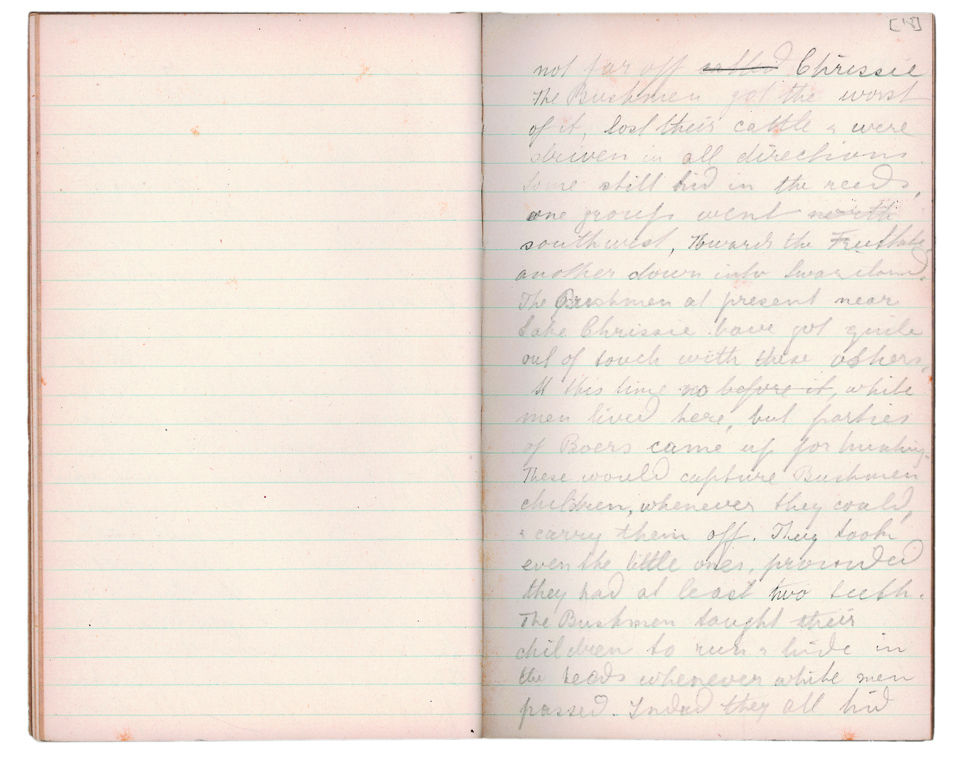 [15]
not far off called Chrissie
The Bushmen got the worst
of it, lost their cattle & were
driven in all directions.
Some still hid in the reeds,
one group went north
southwest, towards the Freestate
another down into Swaziland.
The Bushmen at present near
Lake Chrissie have got quite
out of touch with these others.
At this time no before it, white
men lived here, but parties
of Boers came up for hunting.
These would capture Bushmen
children, whenever they could,
& carry them off. They took
even the little ones, provided
they had at least two teeth.
The Bushmen taught their
children to run & hide in
the reeds whenever white men
passed. Indeed they all hid